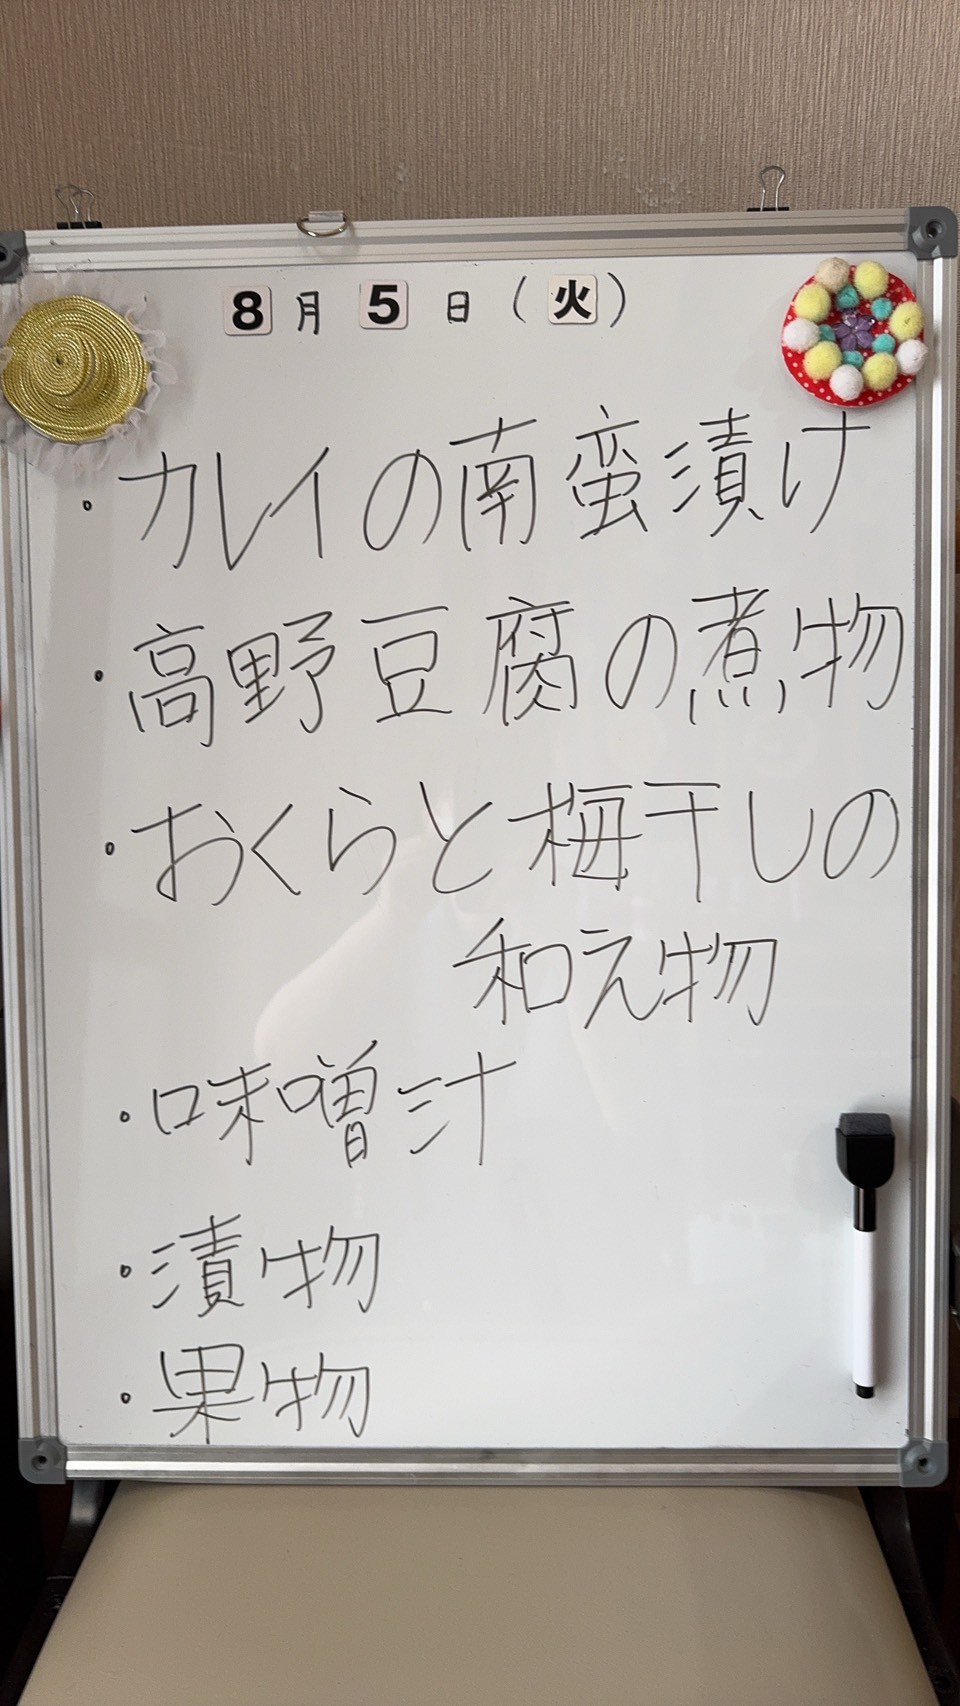 8月5日(火)
・カレイの南蛮漬け
・高野豆腐の煮物
・おくらと梅干しの
和え物
・味噌汁
・漬物
・果物